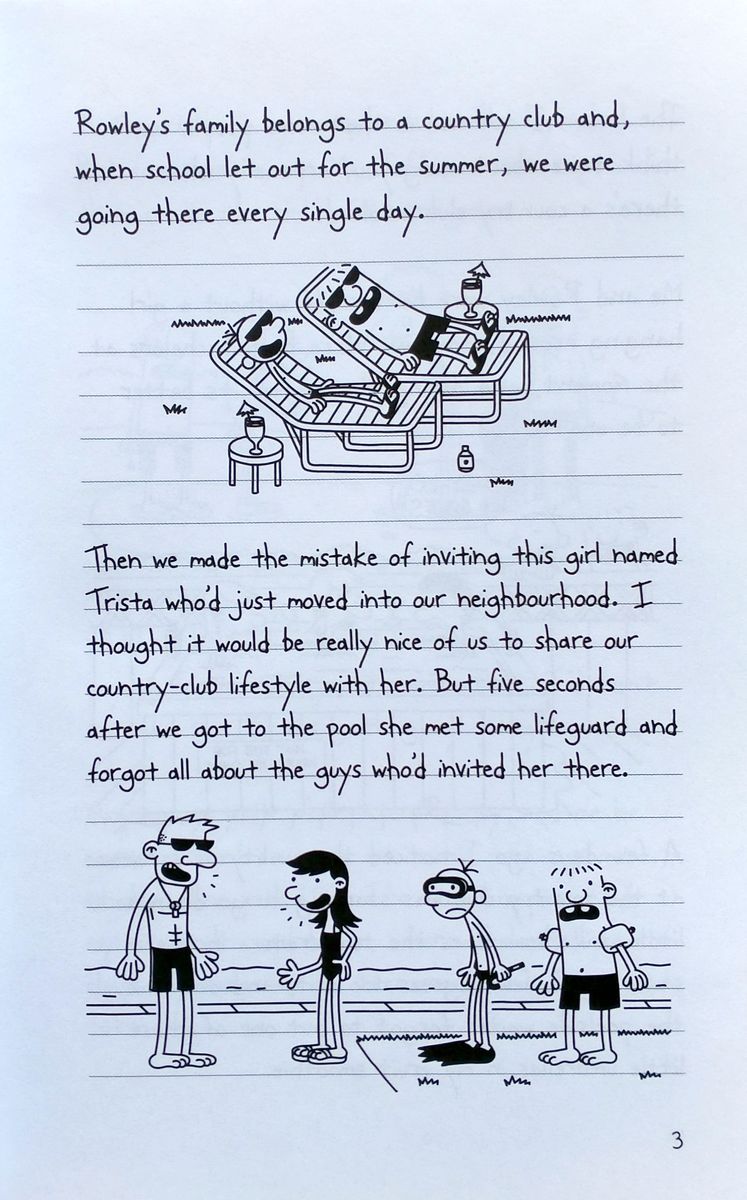 Rowley's family belongs to a country club and,
when school let out for the summer, we were
going there every single day.
Then we made the mistake of inviting this girl named
Trista who'd just moved into our neighbourhood. I
thought it would be really nice of us to share our
country-club lifestyle with her. But five seconds
after we got to the pool she met some lifeguard and
forgot all about the guys who'd invited her there.
3